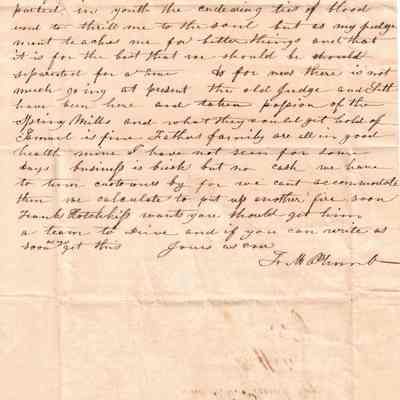 parted in youth the endearing ties of blood
used to thrill me to the soul but as my judge
ment teaches me for better things and that
it is for the best that we should be should
seperated for a time So for news there is not
much going at present the old Judge and
have been here and taken possion of the
Spring Mills and what they could get hold of
Samuel is fine Fathers family are all in good
health mine I have not seen for some
days business is brisk but no cash we have
to turn customers by for we cant accommodate
them we calculate to put up another fire soon
Frank Hotchkiss wants you should get him
a team to drive and if you can write as
soon as you get this Yours as ever
F. M. Plumb